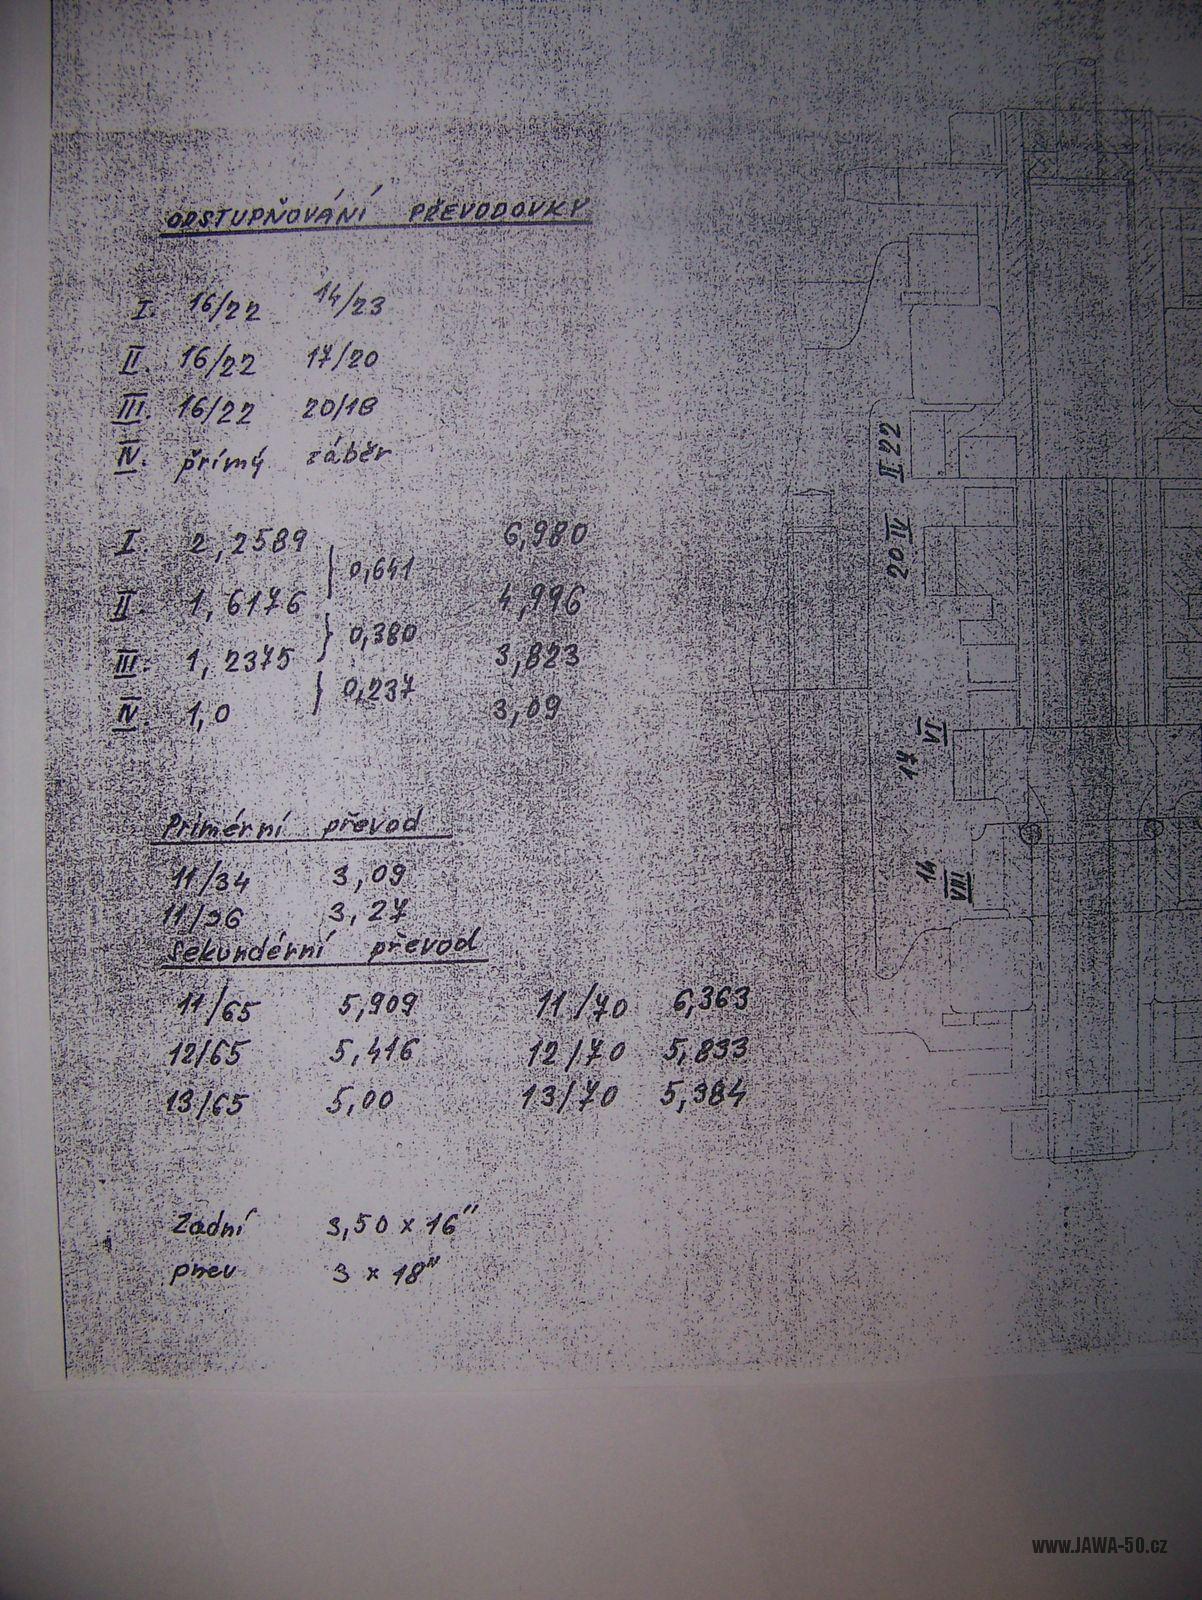 ODSTUPŇOVÁNÍ PŘEVODOVKY
I. 16/22 14/23
II. 16/22 17/20
III. 16/22 20/18
IV. přímý záběr
I. 2,2589 6,980
0,641
II. 1,6176 4,996
0,380
III. 1,2375 3,823
0,237
IV. 1,0 3,09
Primérní převod
11/34 3,09
11/36 3,27
Sekundérní převod
11/65 5,909 11/70 6,363
12/65 5,416 12/70 5,833
13/65 5,00 13/70 5,384
Zadní 3,50 x 16"
pneu 3 x 18"
II 22
20 IV
17 VI
14 VIII
www.JAWA-50.cz